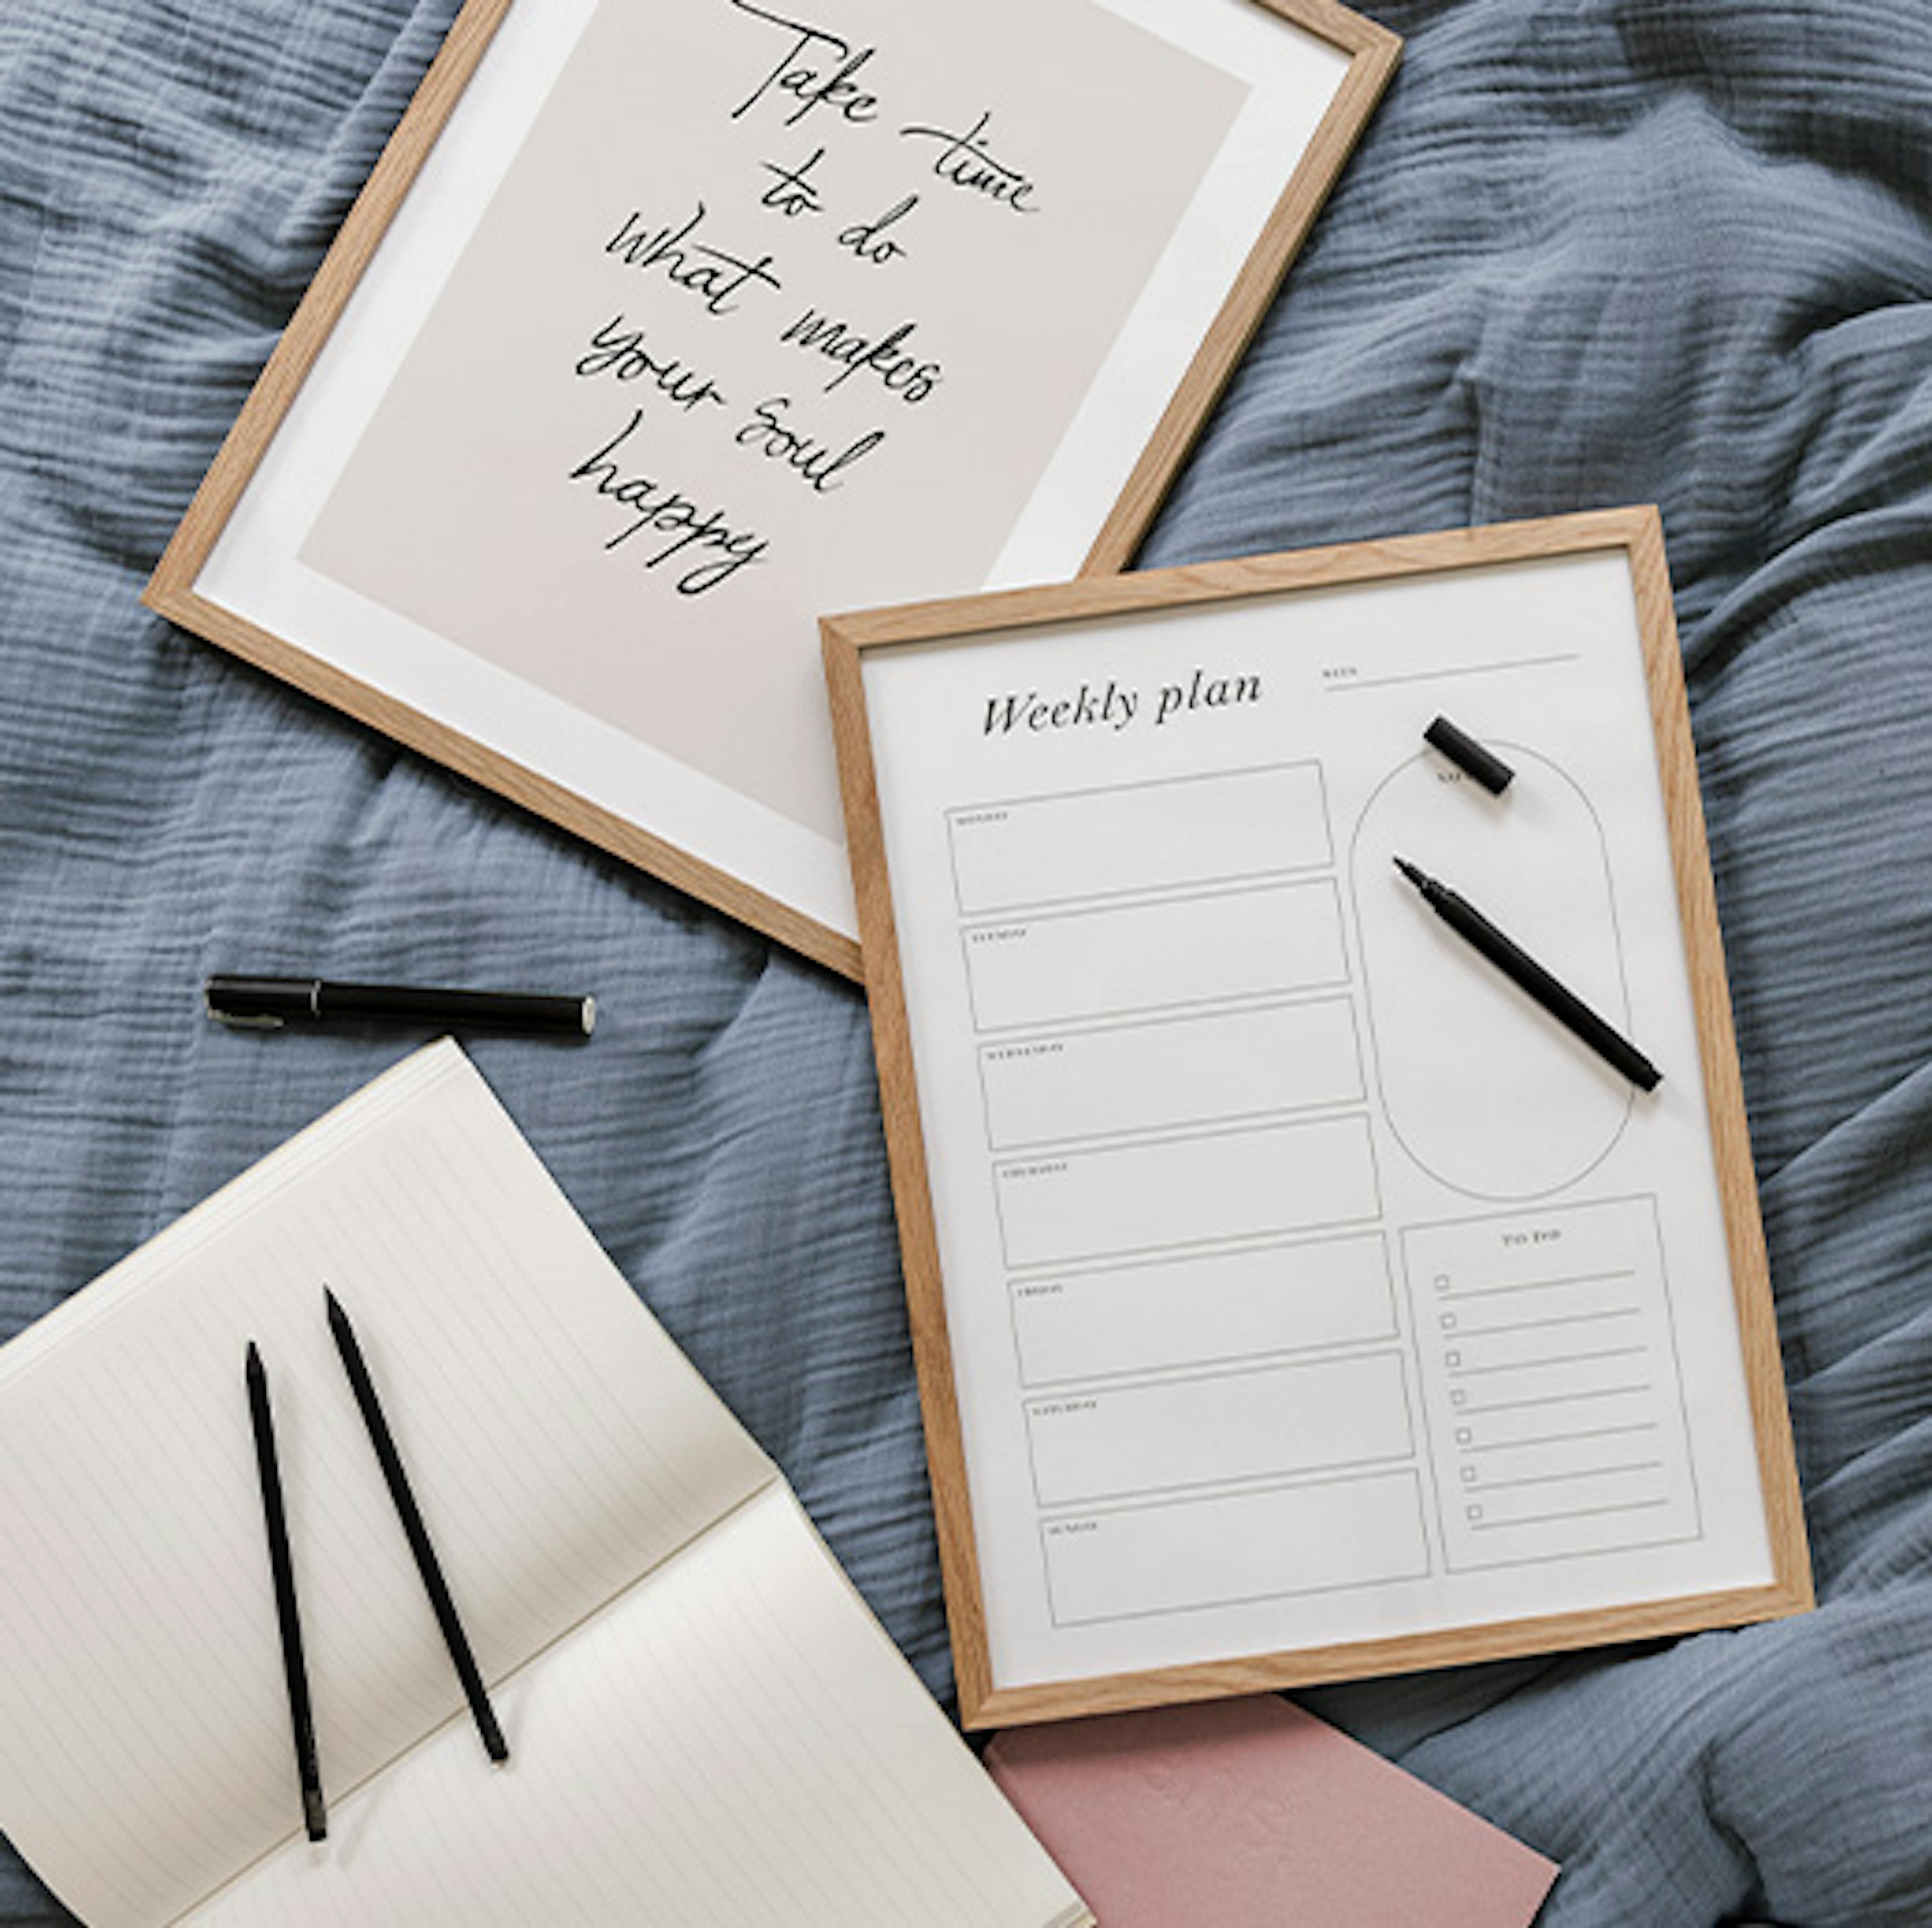 Take time
to do
what makes
your soul
happy
Weekly plan
WEEK
MONDAY
TUESDAY
WEDNESDAY
THURSDAY
FRIDAY
SATURDAY
SUNDAY
TO DO